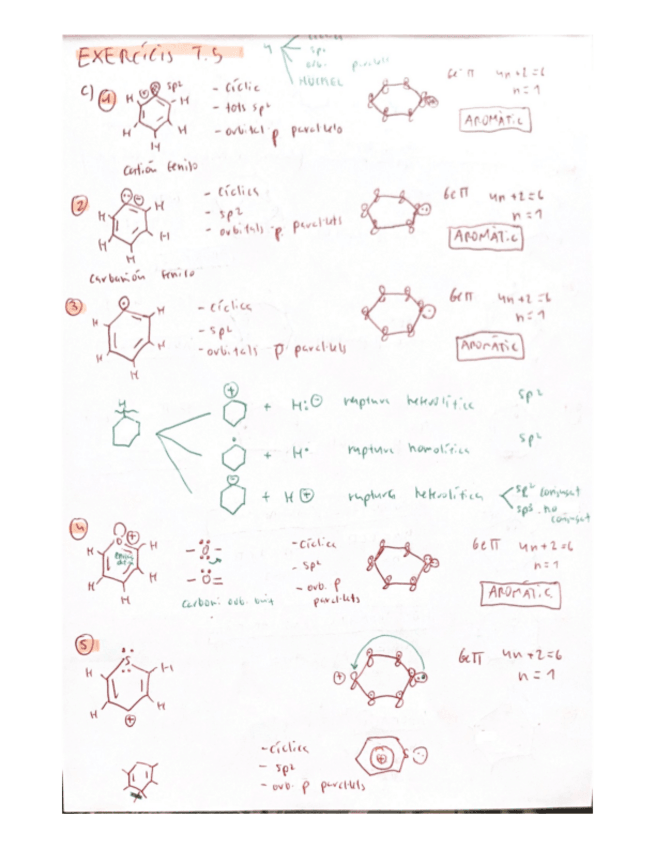 EXERCÍCIS 7.5
sp²
orb. paral·lels
HÜCKEL
C) 1 H sp² H H H H
- cíclic
- tots sp²
- orbital p paral·lelo
6e⁻π 4n+2=6
n=1
AROMÀTIC
Catión fenilo
2 H H H H H
- cíclica
- sp²
- orbitals p paral·lels
6eπ 4n+2=6
n=1
AROMÀTIC
Carbanión fenilo
3 H H H H H
- cíclica
- sp²
- orbitals p paral·lels
6eπ 4n+2=6
n=1
AROMÀTIC
H
+ H:⊖ ruptura heterolítica sp²
+ H• ruptura homolítica sp²
+ H⊕ ruptura heterolítica sp² conjugat
sp³ no conjugat
4 H O ⊕ H H H H
- O -
- O =
- cíclica
- sp²
- orb. p paral·lels
6eπ 4n+2=6
n=1
AROMÀTIC
5 S H H H H
⊕
6eπ 4n+2=6
n=1
- cíclica
- sp²
- orb. p paral·lels